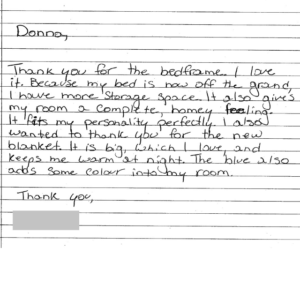 Donna,
Thank you for the bedframe. I love
it. Because my bed is now off the grand,
I have more storage space. It also gives
my room a complete, homey feeling.
It fits my personality perfectly. I also
wanted to thank you for the new
blanket. It is big, which I love, and
keeps me warm at night. The blue also
adds some colour into my room.
Thank you,